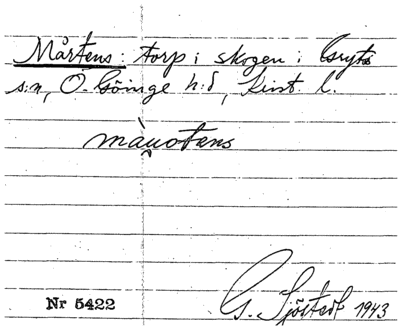 Mårtens: torp i skogen i Gryts
s:n, O. Göinge h:d, Krist. l.
Nr 5422
G. Sjöstedt 1943